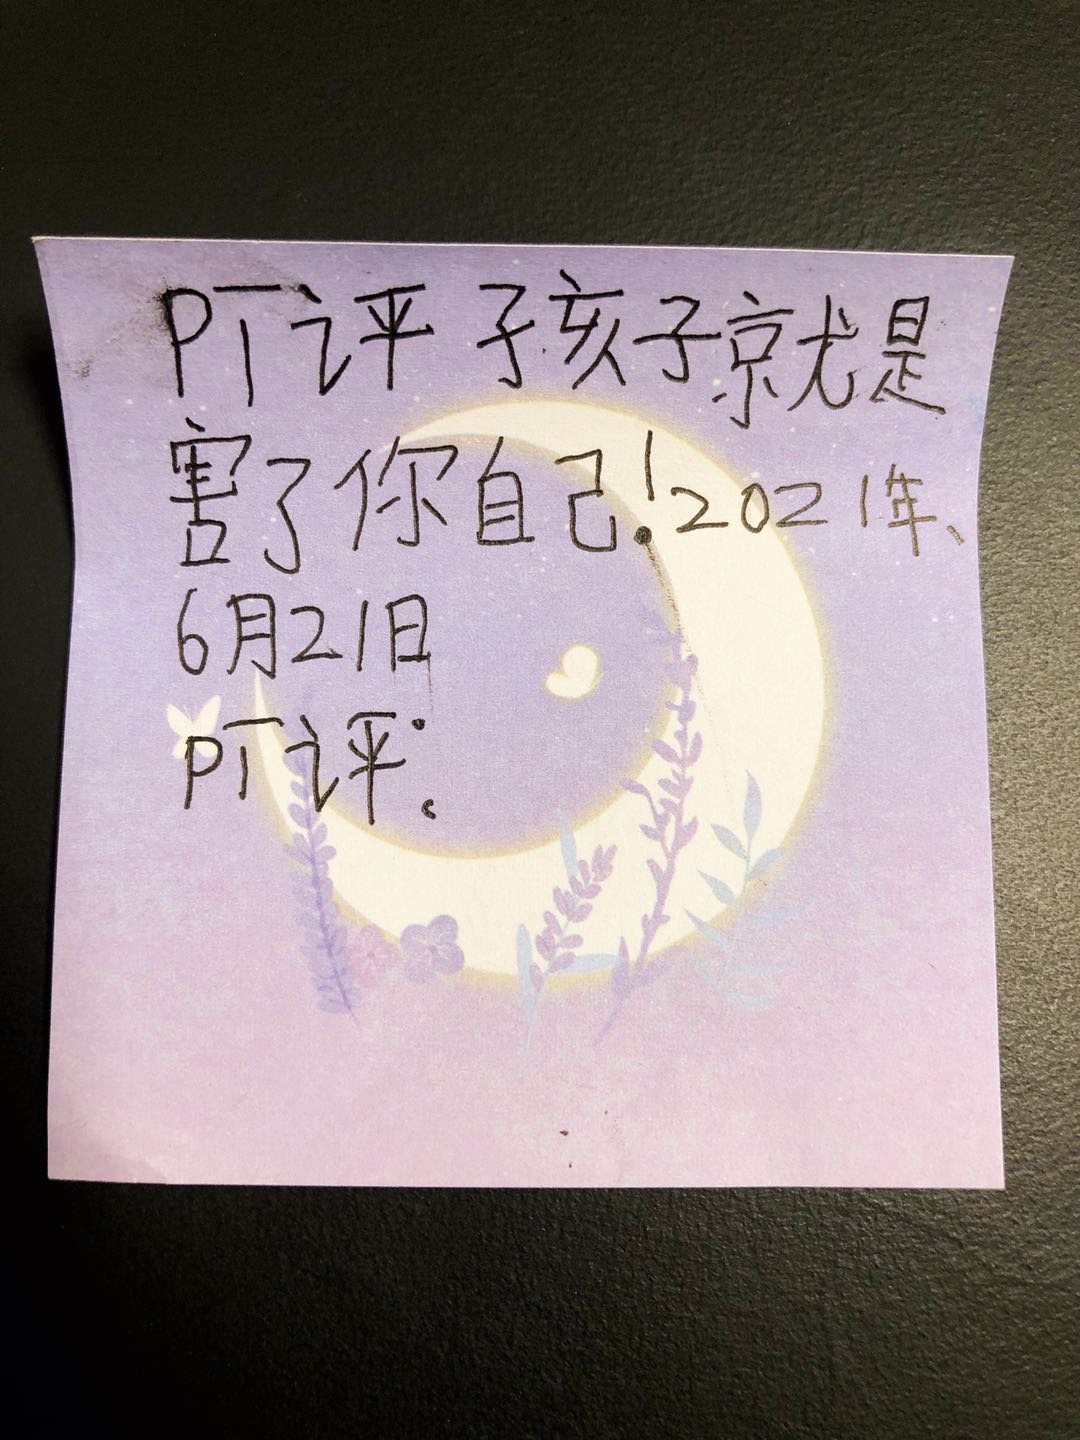 吖评孩子就是
害了你自己!2021年、
6月21日
吖评:。